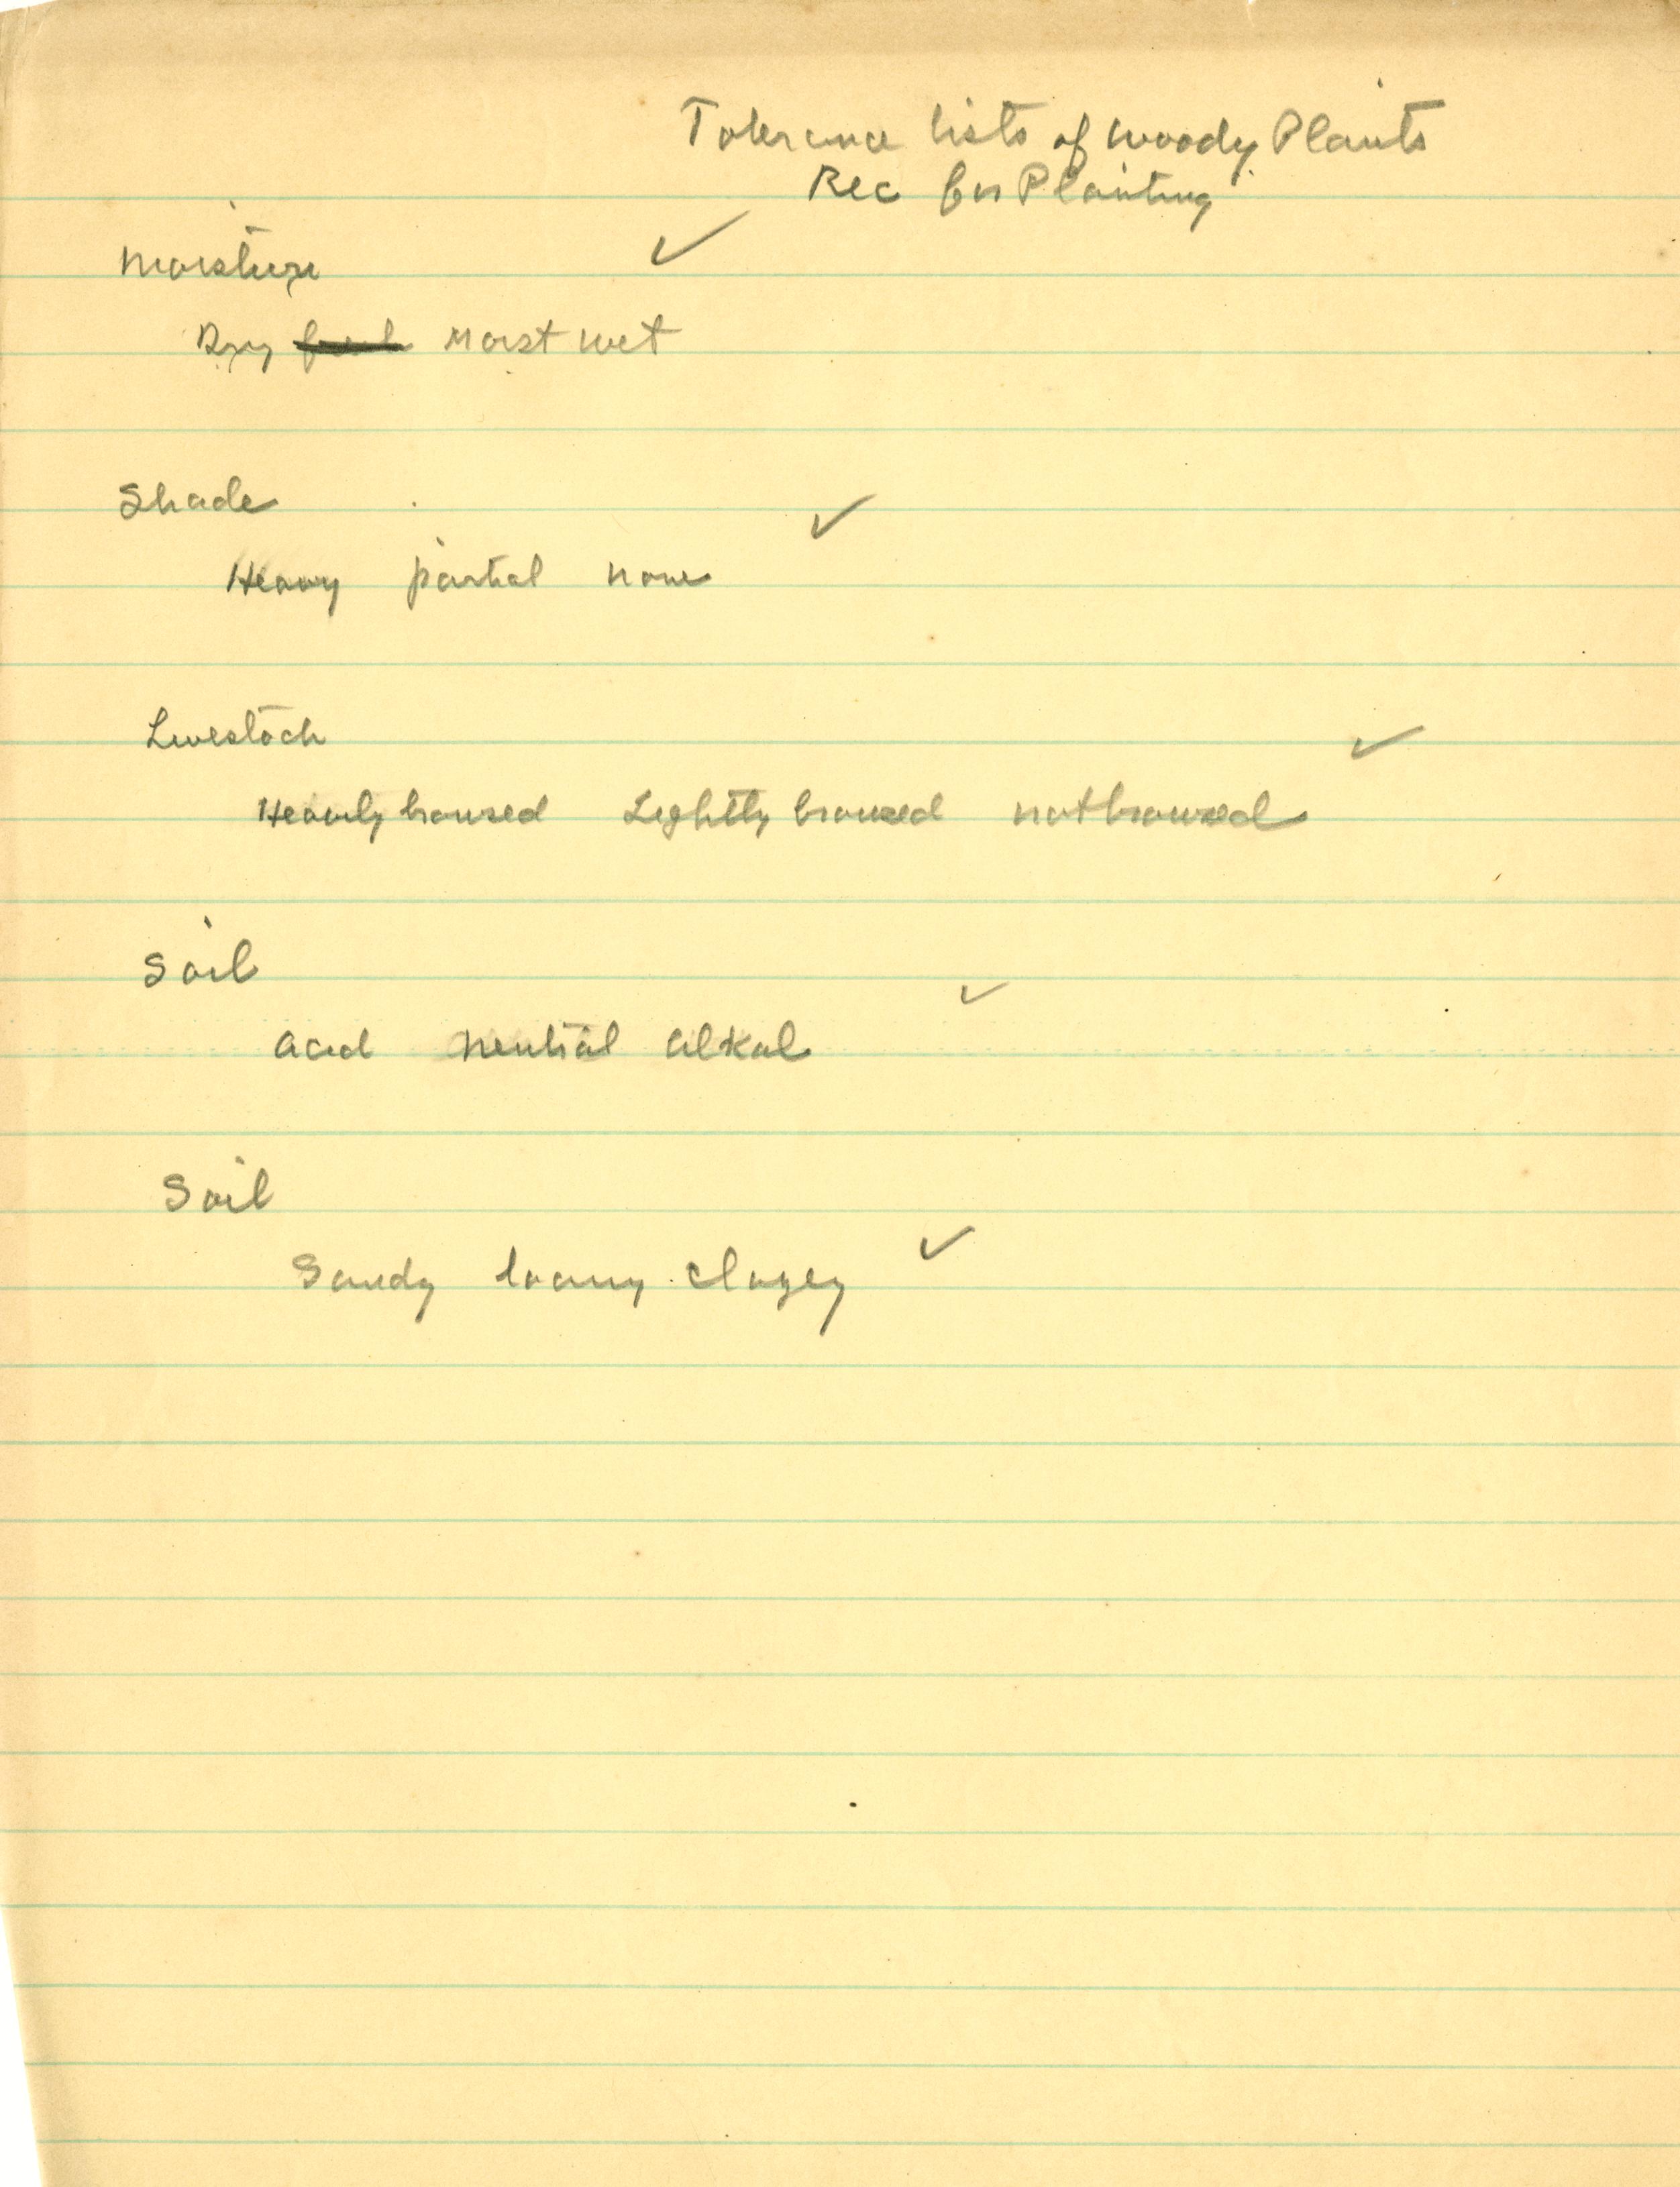 Tolerance lists of Woody Plants
Rec for Planting
Moisture ✓
Dry fresh Moist Wet
Shade ✓
Heavy partial none
Livestock ✓
Heavily browsed Lightly browsed not browsed
Soil
Acid neutral alkal ✓
Soil
Sandy loamy clayey ✓